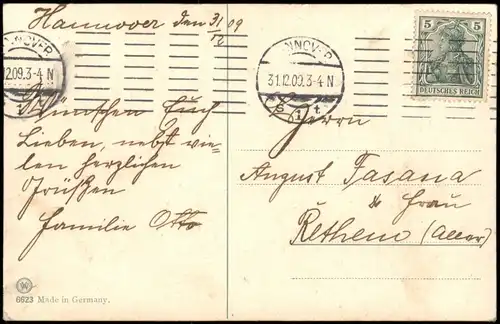 Hannover den 31/12 09
HANNOVER
12.09.3-4 N
HANNOVER
31.12.09.3-4 N
* 1 t.
5 5
DEUTSCHES REICH
Wünschen Euch
Lieben, nebst vie-
len herzlichen
Grüßen
Familie Otto
Herrn
August Fasana
& Frau
Rethem (Aller)
6623 Made in Germany.